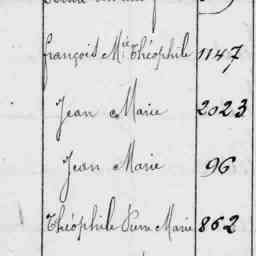 François Mie Théophile 1147
Jean Marie 2023
Jean Marie 96
Théophile Pierre Marie 862